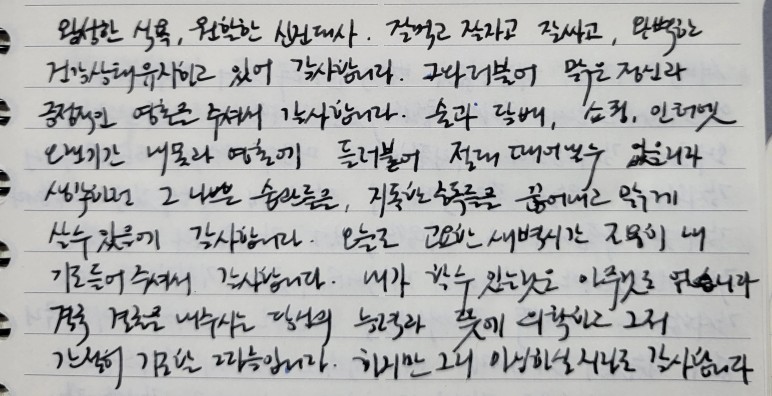 왕성한 식욕, 원활한 신진대사. 잘먹고 잘자고 잘싸고, 완벽한
건강상태유지하고 있어 감사합니다. 그와더불어 맑은 정신과
긍정적인 영혼을 주셔서 감사합니다. 술과 담배, 쇼핑, 인터넷
오랜기간 내몸과 영혼에 들러붙어 절대 떼어낼수 없으리라
생각하던 그 나쁜 습관들을, 지독한 중독들을 끊어내고 맑게
살수 있음에 감사합니다. 오늘도 고요한 새벽시간 조용히 내
기도들어 주셔서 감사합니다. 내가 할수 있는것은 아무것도 없습니다
결국 결론을 내주시는 당신의 능력과 뜻에 의탁하고 그저
간절히 기도할 따름입니다. 하지만 그리 이상하실지라도 감사합니다